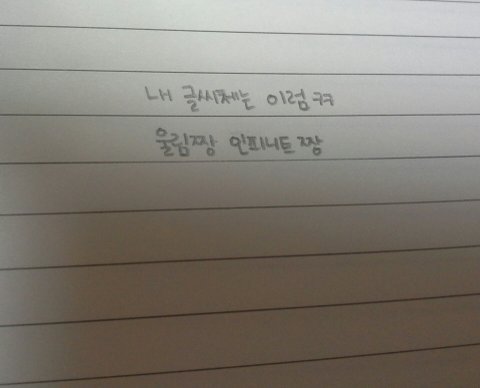 내 글씨체는 이럼 ㅋㅋ
울림짱 인피니트짱